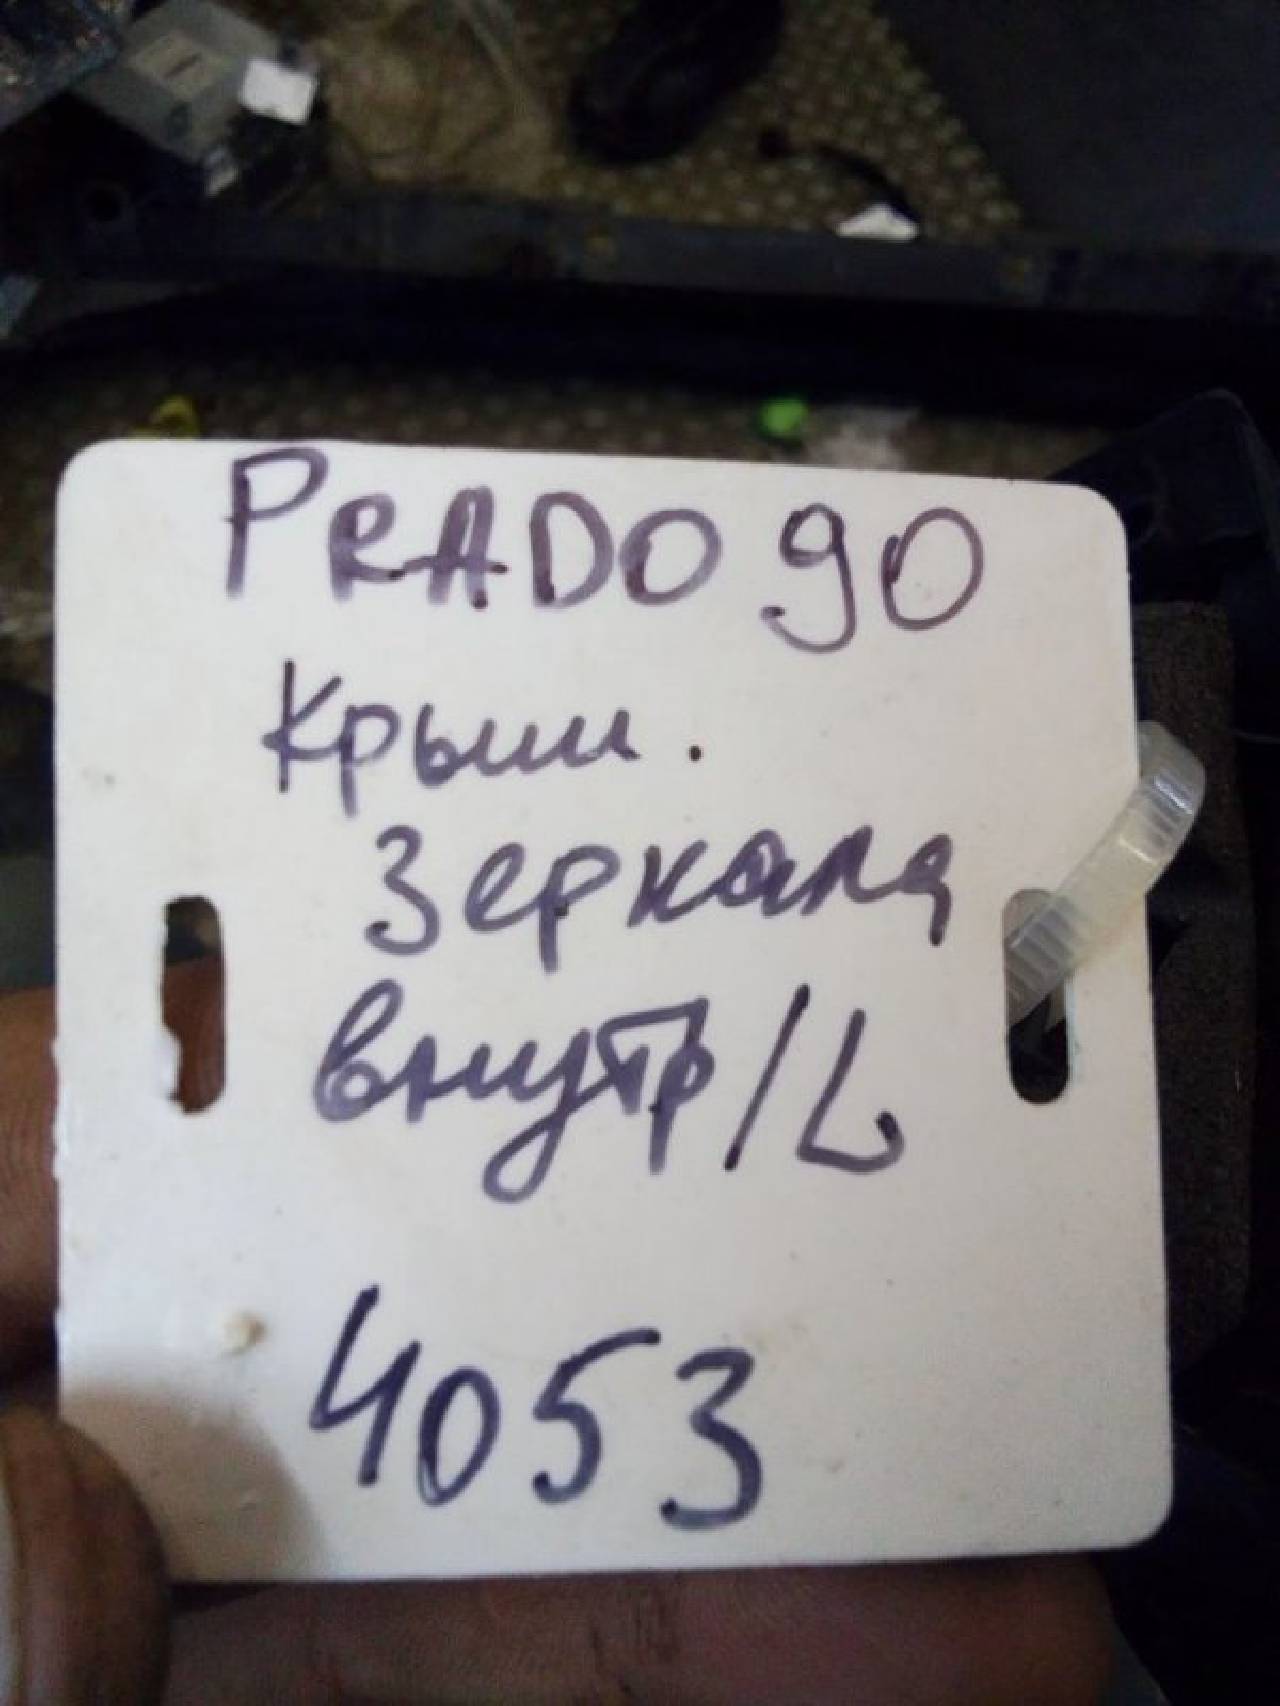 PRADO 90
Крыш.
Зеркала
внутр/L
4053